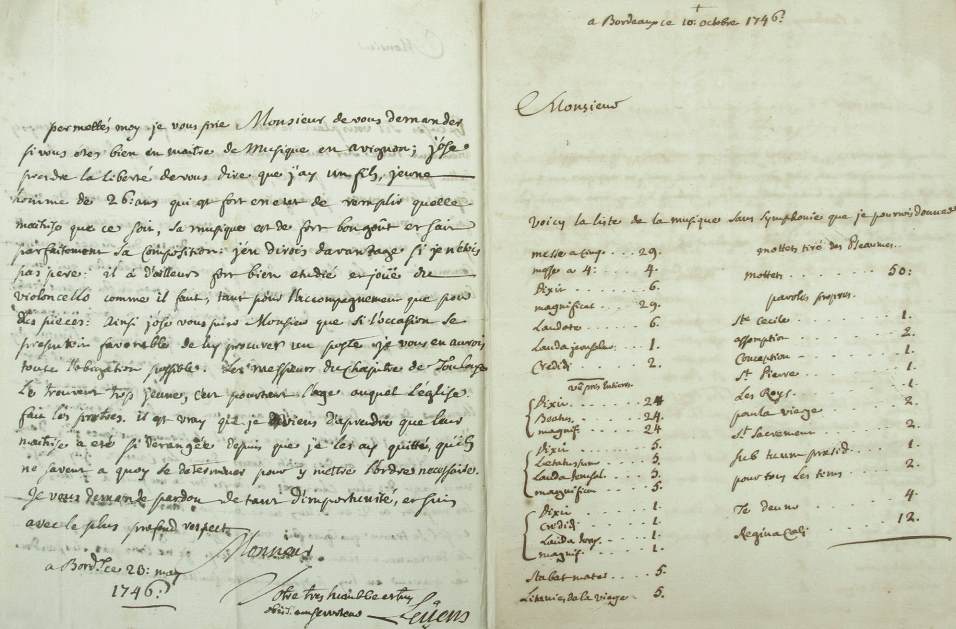 permettés moy je vous prie Monsieur de vous demander
si vous etes bien en maitre de Musique en avignon; j'ose
prendre la liberté de vous dire que j'ay un fils, jeune
homme de 26: ans qui est fort en etat de remplir quelle
maitrise que ce soit, sa musique est de fort bon goût et sait
parfaitement sa Composition: j'en dirois davantage si je n'etois
pas pere: il a d'ailleurs fort bien etudié et joüe du
violoncello comme il faut, tant pour l'accompagnement que pour
des pieces: Ainsi j'ose vous prier Monsieur que si l'occasion se
presentoit favorable de luy procurer un poste je vous en aurois
toute l'obligation possible. Les messieurs du Chapitre de Toulouse
Le trouvent trop jeune, c'est pourtant l'age auquel l'église
fait les prêtres. il est vray que je viens d'aprendre que leur
maitrise a eté si derangée depuis que je les ay quittés, qu'ils
ne savent a quoy se determiner pour y mettre l'ordre necessaire.
Je vous demande pardon de tant d'importunité, et suis
avec le plus profond respect
Monsieur
a Bordx. ce 23: may
1746:
Votre tres humble et tres
obeiss. serviteur
Levens
a Bordeaux ce 10: octobre 1746:
Monsieur
voicy la liste de la musique sans symphonie que je pourrois donner
messe a cinq . . . 29.
messe a 4: . . . 4.
Dixit . . . . . 6.
magnificat . . . 29.
Laudate . . . . 6.
Lauda jerusalem . . 1.
Credidi . . . . 2.
vêpres Entieres.
Dixit . . . . . 24
Beatus . . . . 24.
magnif. . . . . 24
Dixit . . . . . 5.
Lætatus sum . . . . 5.
Lauda Jerusal. . . . 5.
magnificat . . . . 5.
Dixit . . . . . 1.
Credidi . . . . 1.
Lauda Jerus. . . . 1.
magnif. . . . . 1.
Stabat mater . . . . 5.
Litanies de la vierge . . 5.
mottets tiré des Pseaumes.
mottets . . . . . . . 50:
paroles propres.
Ste Cecile . . . . . 1.
assomption . . . . . 2.
Conception . . . . . 1.
St Pierre . . . . . 1.
Les Roys . . . . . 1.
pour la vierge . . . . 2.
St Sacrement . . . . 2.
sub tuum præsid. . . . 1.
pour tous les tems . . . 2.
Te deum . . . . . 4.
Regina Cæli . . . . 12.